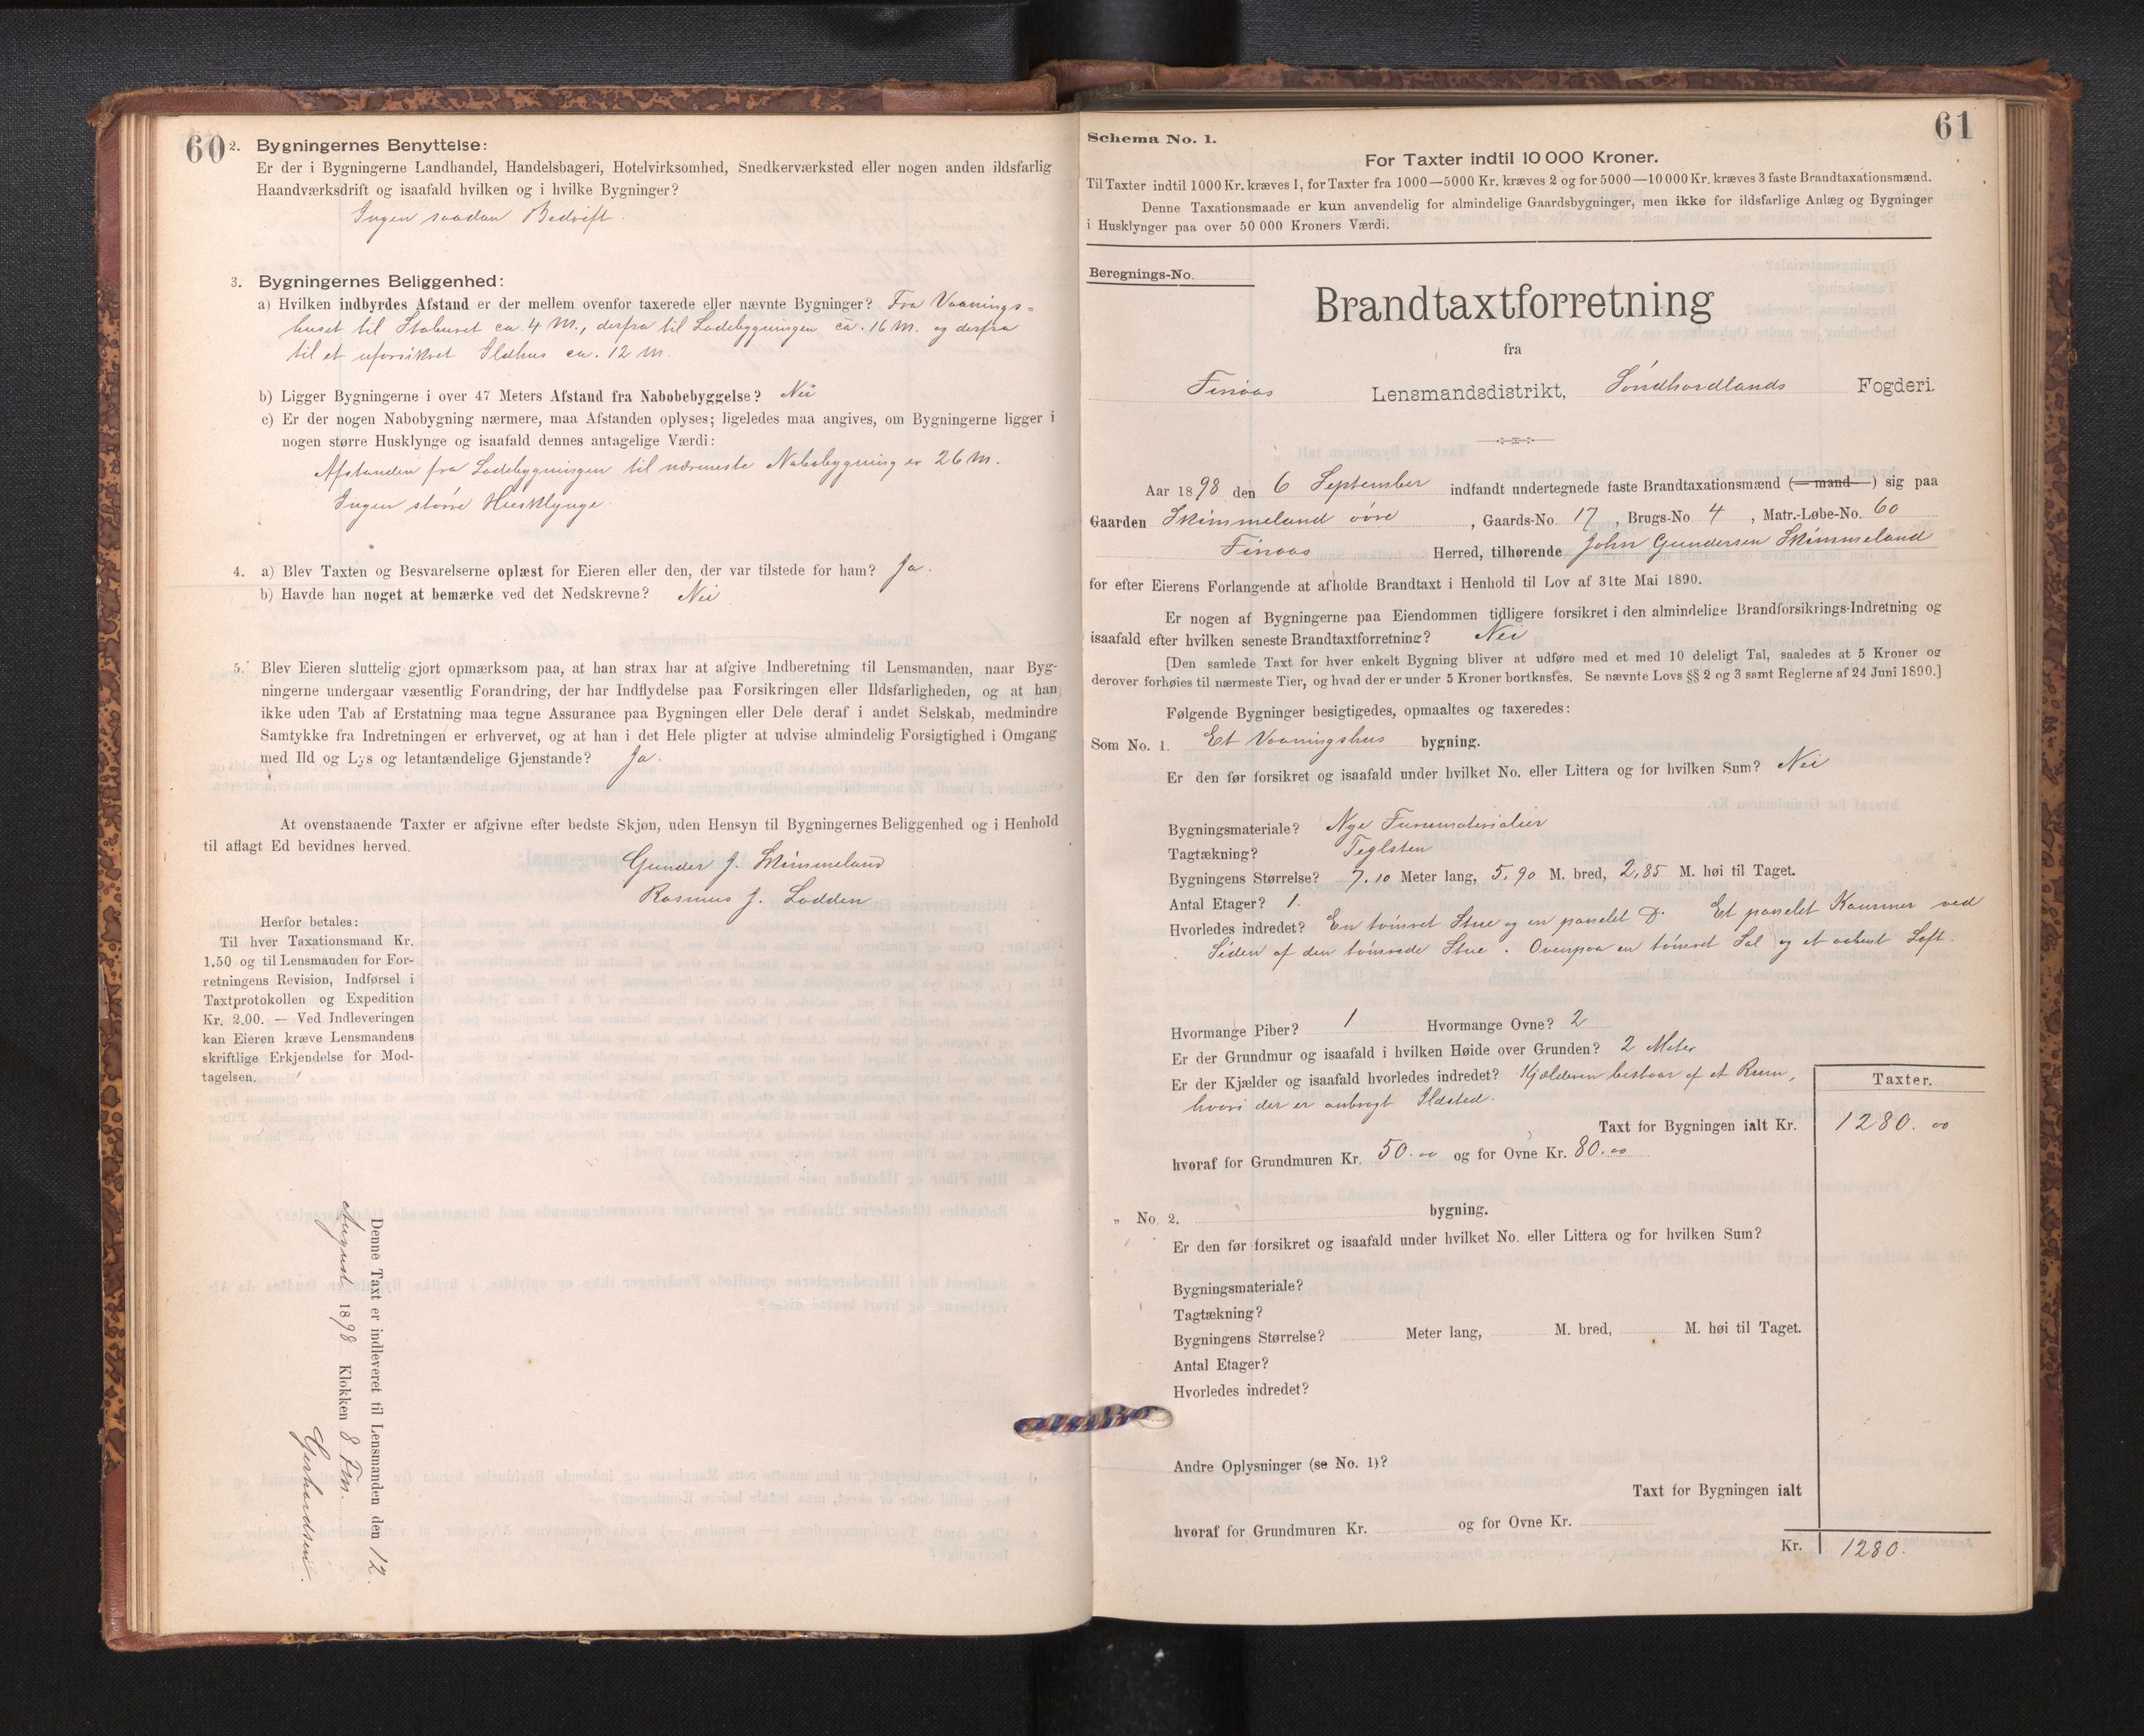 60
2. Bygningernes Benyttelse:
Er der i Bygningerne Landhandel, Handelsbageri, Hotelvirksomhed, Snedkerværksted eller nogen anden ildsfarlig
Haandværksdrift og isaafald hvilken og i hvilke Bygninger?
Ingen saadan Bedrift.
3. Bygningernes Beliggenhed:
a) Hvilken indbyrdes Afstand er der mellem ovenfor taxerede eller nævnte Bygninger? Fra Vaanings-
huset til Staburet ca. 4 M., derfra til Ladebygningen ca. 16 M. og derfra
til et uforsikret Ildhus ca. 12 M.
b) Ligger Bygningerne i over 47 Meters Afstand fra Nabobebyggelse? Nei
c) Er der nogen Nabobygning nærmere, maa Afstanden oplyses; ligeledes maa angives, om Bygningerne ligger i
nogen større Husklynge og isaafald dennes antagelige Værdi:
Afstanden fra Ladebygningen til nærmeste Nabobygning er 26 M.
Ingen större Husklynge.
4. a) Blev Taxten og Besvarelserne oplæst for Eieren eller den, der var tilstede for ham? Ja.
b) Havde han noget at bemærke ved det Nedskrevne? Nei
5. Blev Eieren sluttelig gjort opmærksom paa, at han strax har at afgive Indberetning til Lensmanden, naar Byg-
ningerne undergaar væsentlig Forandring, der har Indflydelse paa Forsikringen eller Ildsfarligheden, og at han
ikke uden Tab af Erstatning maa tegne Assurance paa Bygningen eller Dele deraf i andet Selskab, medmindre
Samtykke fra Indretningen er erhvervet, og at han i det Hele pligter at udvise almindelig Forsigtighed i Omgang
med Ild og Lys og letantændelige Gjenstande? Ja.
At ovenstaaende Taxter er afgivne efter bedste Skjøn, uden Hensyn til Bygningernes Beliggenhed og i Henhold
til aflagt Ed bevidnes herved.
Gunder J. Skimmeland
Rasmus J. Lodden
Herfor betales:
Til hver Taxationsmand Kr.
1.50 og til Lensmanden for For-
retningens Revision, Indførsel i
Taxtprotokollen og Expedition
Kr. 2.00. — Ved Indleveringen
kan Eieren kræve Lensmandens
skriftlige Erkjendelse for Mod-
tagelsen.
Denne Taxt er indleveret til Lensmanden den 12
August 1898 Klokken 8 Fm.
Gerhardsen
61
Schema No. 1.
For Taxter indtil 10 000 Kroner.
Til Taxter indtil 1000 Kr. kræves 1, for Taxter fra 1000—5000 Kr. kræves 2 og for 5000—10 000 Kr. kræves 3 faste Brandtaxationsmænd.
Denne Taxationsmaade er kun anvendelig for almindelige Gaardsbygninger, men ikke for ildsfarlige Anlæg og Bygninger
i Husklynger paa over 50 000 Kroners Værdi.
Beregnings-No.
Brandtaxtforretning
fra
Finaas Lensmandsdistrikt, Söndhordlands Fogderi.
Aar 1898 den 6 September indfandt undertegnede faste Brandtaxationsmænd (— mand —) sig paa
Gaarden Skimmeland övre, Gaards-No. 17, Brugs-No. 4, Matr.-Løbe-No. 60
Finaas Herred, tilhørende John Gundersen Skimmeland
for efter Eierens Forlangende at afholde Brandtaxt i Henhold til Lov af 31te Mai 1890.
Er nogen af Bygningerne paa Eiendommen tidligere forsikret i den almindelige Brandforsikrings-Indretning og
isaafald efter hvilken seneste Brandtaxtforretning? Nei
[Den samlede Taxt for hver enkelt Bygning bliver at udføre med et med 10 deleligt Tal, saaledes at 5 Kroner og
derover forhøies til nærmeste Tier, og hvad der er under 5 Kroner bortkastes. Se nævnte Lovs §§ 2 og 3 samt Reglerne af 24 Juni 1890.]
Følgende Bygninger besigtigedes, opmaaltes og taxeredes:
Som No. 1. Et Vaaningshus bygning.
Er den før forsikret og isaafald under hvilket No. eller Littera og for hvilken Sum? Nei
Bygningsmateriale? Nye Furumaterialier
Tagtækning? Teglsten
Bygningens Størrelse? 7.10 Meter lang, 5,90 M. bred, 2,85 M. høi til Taget.
Antal Etager? 1.
Hvorledes indredet? En tömret Stue og en panelet D. Et panelet Kammer ved
Siden af den tömrede Stue. Ovenpaa en tömret Sal og et aabent Loft.
Hvormange Piber? 1 Hvormange Ovne? 2
Er der Grundmur og isaafald i hvilken Høide over Grunden? 2 Meter
Er der Kjælder og isaafald hvorledes indredet? Kjælderen bestaar af et Rum,
hvori der er anbragt Ildsted.
Taxter.
Taxt for Bygningen ialt Kr. 1280. 00
hvoraf for Grundmuren Kr. 50.00 og for Ovne Kr. 80.00
„ No. 2. bygning.
Er den før forsikret og isaafald under hvilket No. eller Littera og for hvilken Sum?
Bygningsmateriale?
Tagtækning?
Bygningens Størrelse? Meter lang, M. bred, M. høi til Taget.
Antal Etager?
Hvorledes indredet?
Andre Oplysninger (se No. 1)?
Taxt for Bygningen ialt
hvoraf for Grundmuren Kr. og for Ovne Kr.
Kr. 1280.